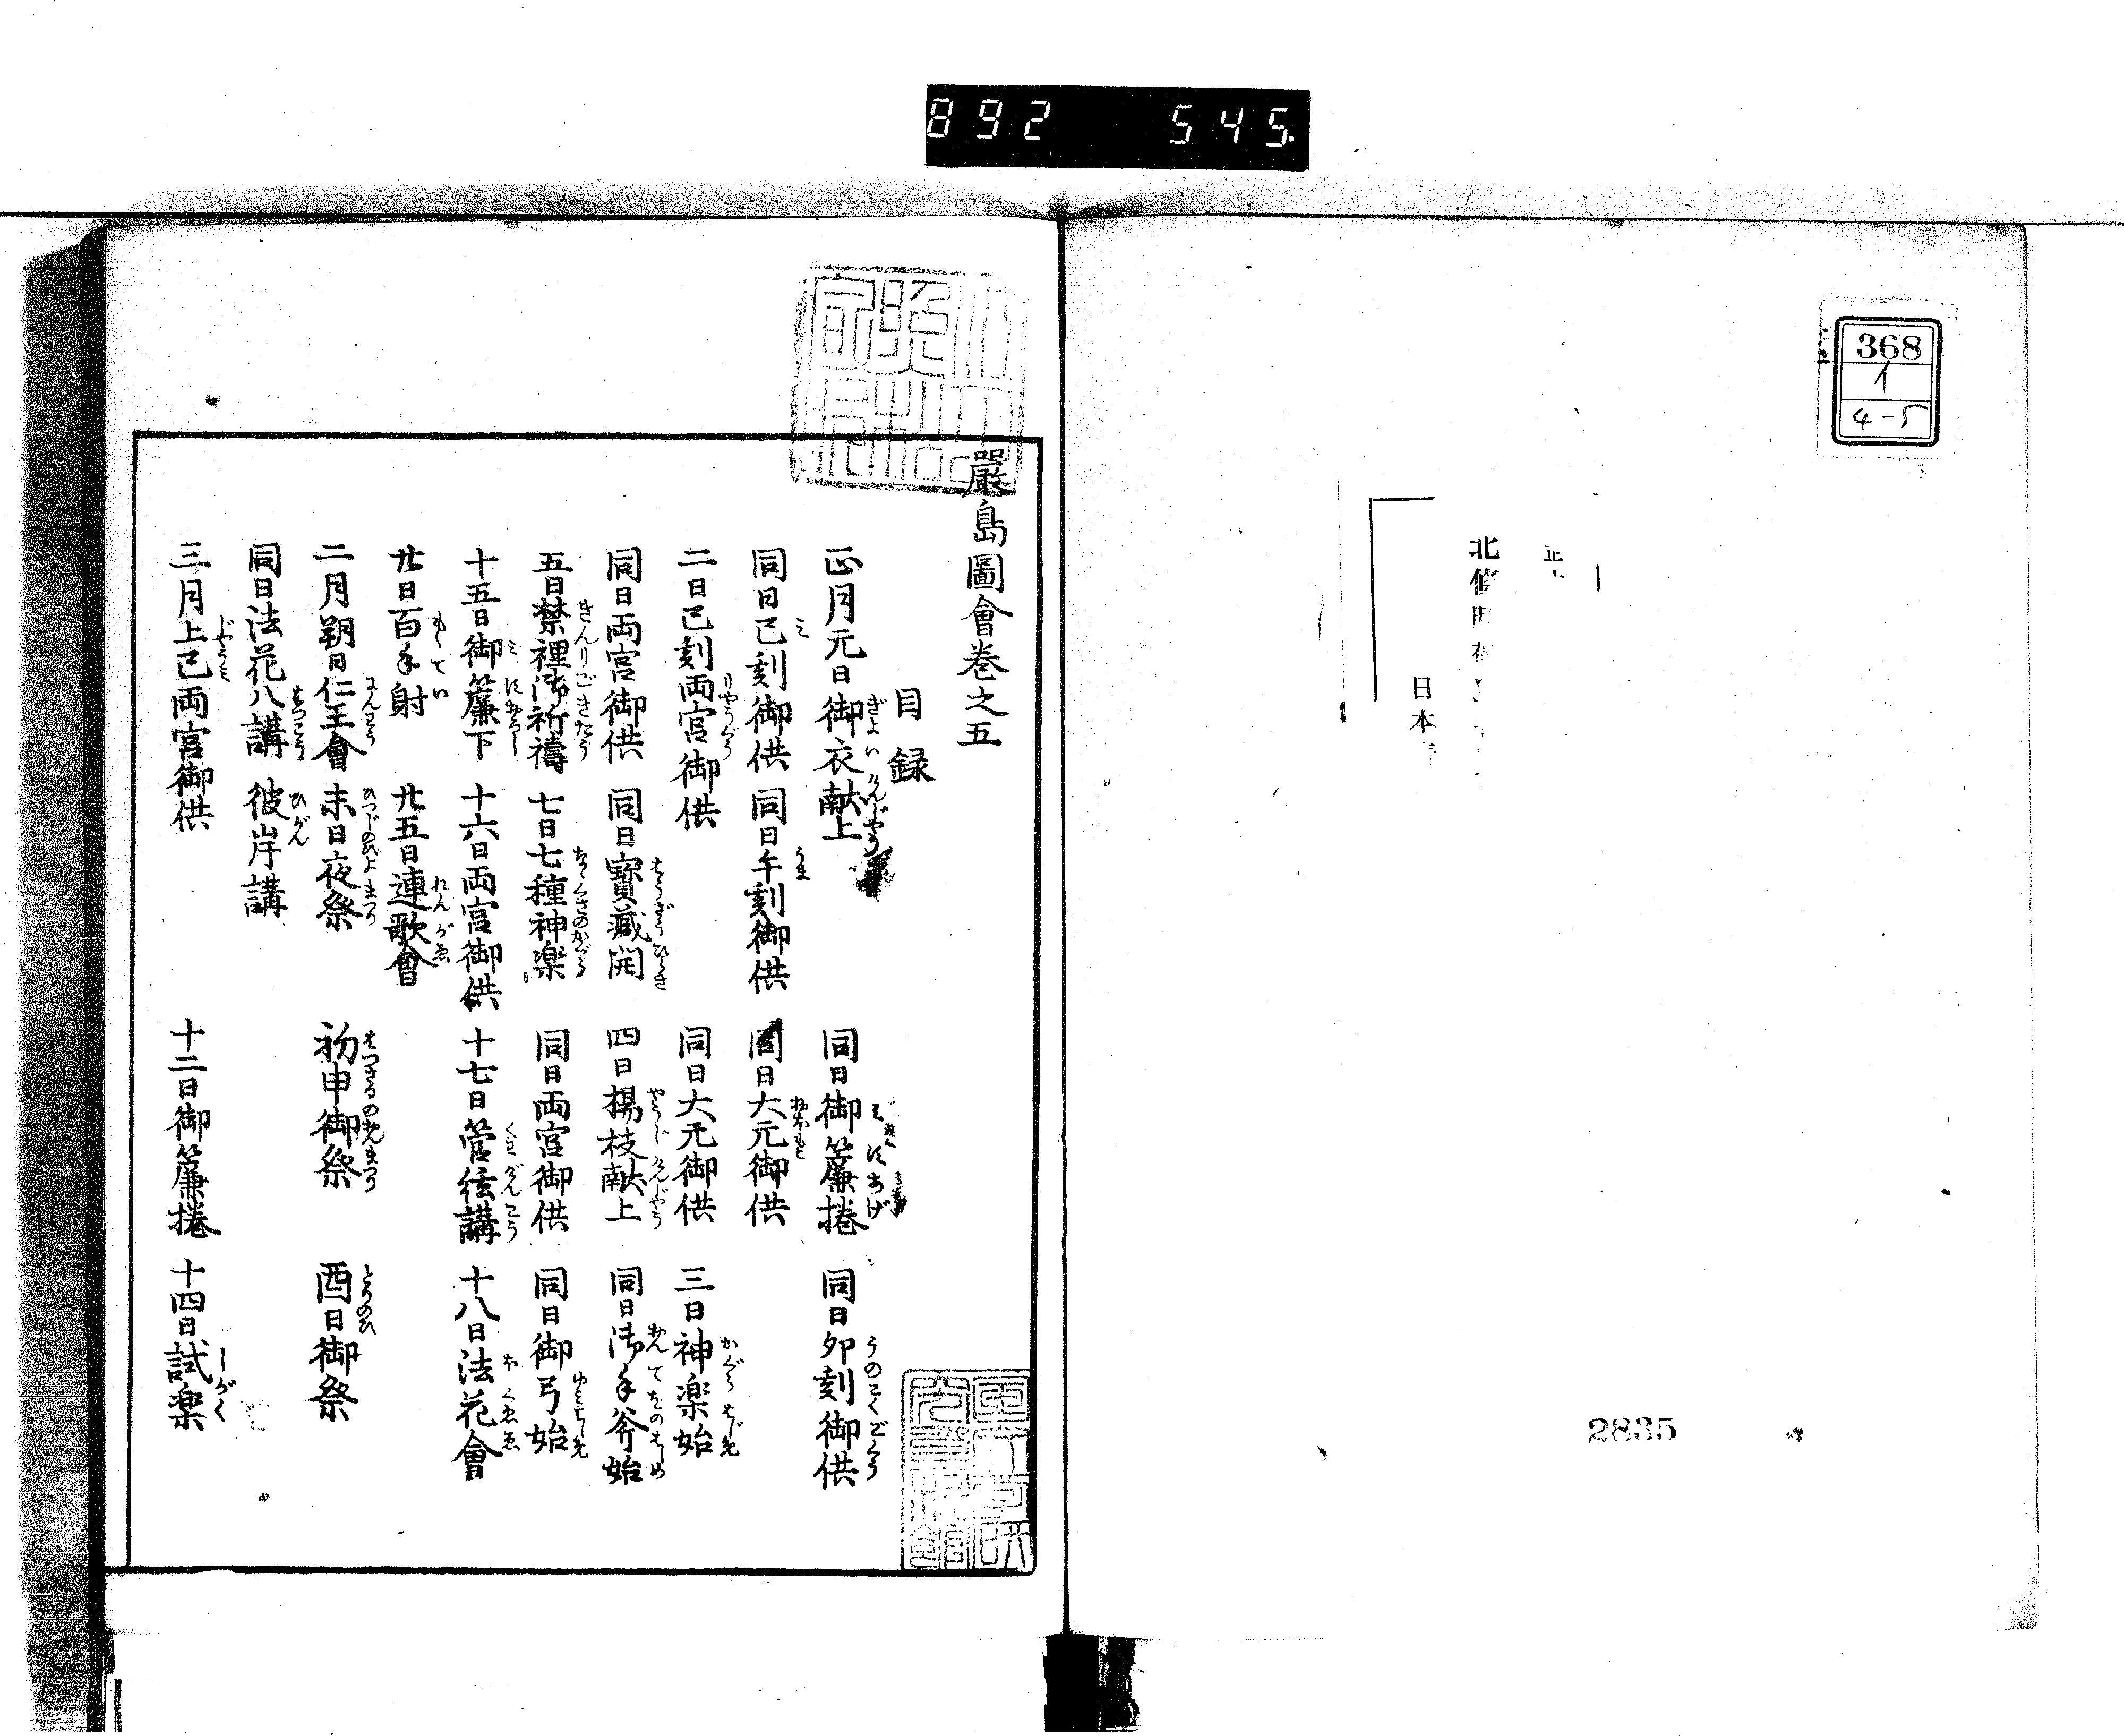 892 545
368
イ
4-5
北條時
日本
2835
嚴島圖會巻之五
目録
正月元日御衣献上 同日御簾捲 同日卯刻御供
同日巳刻御供 同日午刻御供 同日大元御供
二日巳刻両宮御供 同日大元御供 三日神楽始
同日両宮御供 同日寶藏開 四日楊枝献上 同日御手斧始
五日禁裡御祈禱 七日七種神楽 同日両宮御供 同日御弓始
十五日御簾下 十六日両宮御供 十七日管絃講 十八日法花會
廿日百手射 廿五日連歌會
二月朔日仁王會 未日夜祭 初申御祭 酉日御祭
同日法花八講 彼岸講
三月上巳両宮御供 十二日御簾捲 十四日試楽